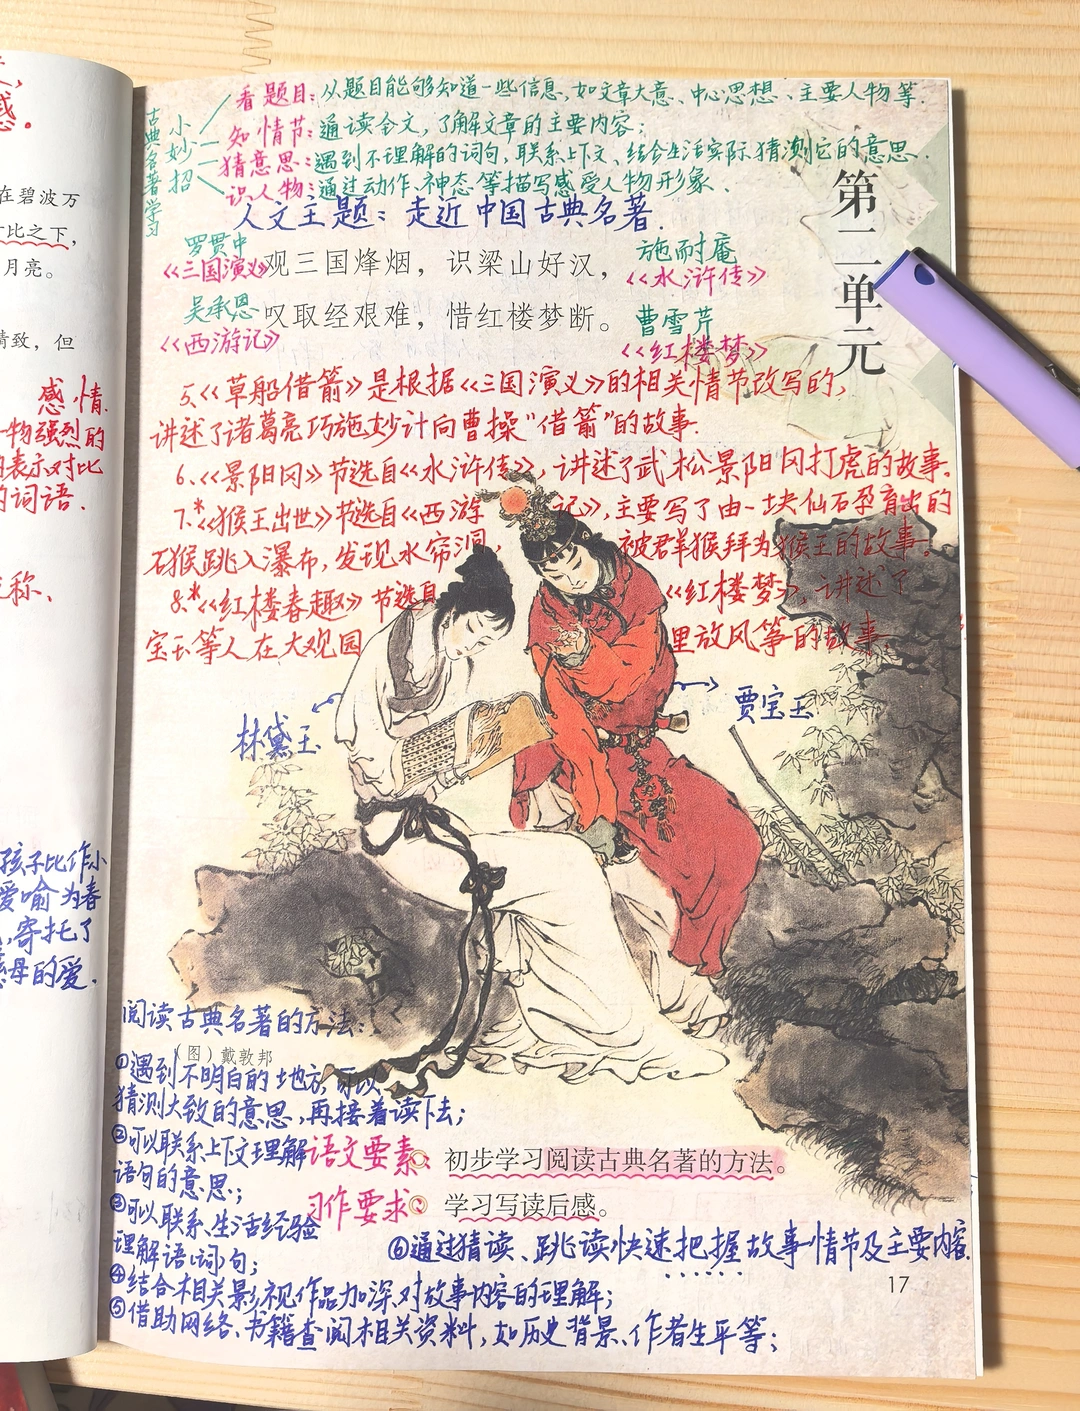 感.
在碧波万
比之下，
月亮。
情致，但
感情.
物强烈的
的表示对比
的词语.
称、
孩子比作小
爱喻为春
,寄托了
母的爱.
古典名著学习
小妙招
看题目：从题目能够知道一些信息,如文章大意、中心思想、主要人物等.
知情节：通读全文,了解文章的主要内容；
猜意思：遇到不理解的词句,联系上下文、结合生活实际猜测它的意思.
识人物：通过动作、神态等描写感受人物形象.
人文主题：走近中国古典名著.
第二单元
罗贯中
《三国演义》
观三国烽烟，识梁山好汉，
施耐庵
《水浒传》
吴承恩
《西游记》
叹取经艰难，惜红楼梦断。
曹雪芹
《红楼梦》
5、《草船借箭》是根据《三国演义》的相关情节改写的,
讲述了诸葛亮巧施妙计向曹操“借箭”的故事.
6、《景阳冈》节选自《水浒传》,讲述了武松景阳冈打虎的故事.
7.*《猴王出世》节选自《西游记》,主要写了由一块仙石孕育出的
石猴跳入瀑布,发现水帘洞,被群猴拜为猴王的故事.
8.*《红楼春趣》节选自《红楼梦》,讲述了
宝玉等人在大观园里放风筝的故事.
林黛玉
贾宝玉
阅读古典名著的方法：
（图）戴敦邦
①遇到不明白的地方,可以
猜测大致的意思,再接着读下去；
②可以联系上下文理解
语句的意思；
③可以联系生活经验
理解语(词)句；
④结合相关影视作品加深对故事内容的理解；
⑤借助网络、书籍查阅相关资料,如历史背景、作者生平等；
语文要素：初步学习阅读古典名著的方法。
习作要求：学习写读后感。
⑥通过猜读、跳读快速把握故事情节及主要内容.
17